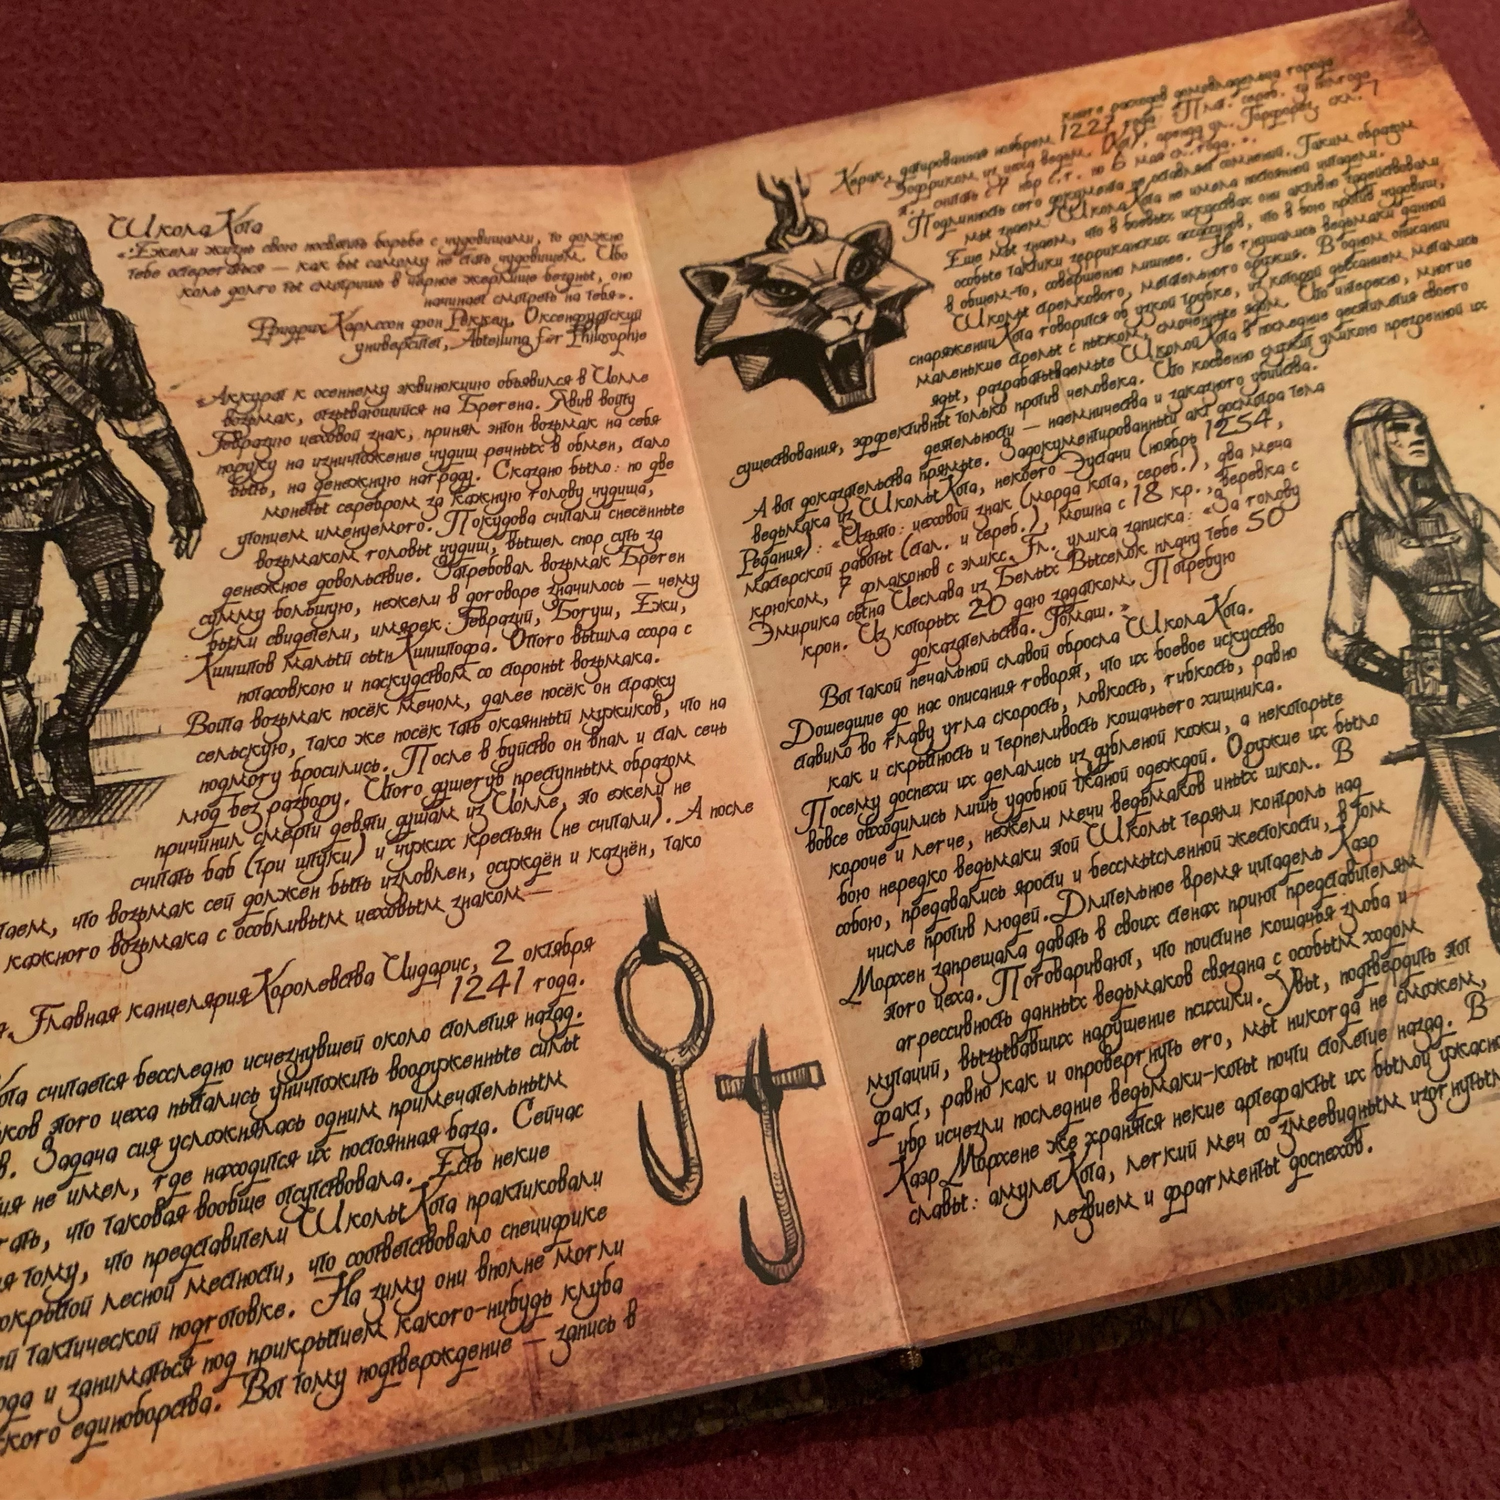 Школа Кота
«Ежели жизнь свою посвятить борьбе с чудовищами, то должно
тебе остерегаться — как бы самому не стать чудовищем. Ибо
коль долго ты смотришь в чёрное жерлище бездны, оно
начинает смотреть на тебя».
Фридрих Карлссон фон Роккен, Оксенфуртский
университет, Abteilung für Philosophie
«Аккурат к осеннему эквинокцию объявился в Иолле
возьмак, отзывающийся на Брегена. Явив войту
Гевразию цеховой знак, принял энтон возьмак на себя
поруку на изничтожение чудищ речных в обмен, стало
быть, на денежную награду. Сказано было: по две
монеты серебром за кажную голову чудища,
утопцем именуемого. Покудова считали снесённые
возьмаком головы чудищ, вышел спор суть за
денежное довольствие. Затребовал возьмак Бреген
сумму большую, нежели в договоре значилось — чему
были свидетели, имярек: Гевразий, Богуш, Ежи,
Кшиштов малый сын Кшиштофа. Опого вышла ссора с
потасовкою и паскудством со стороны возьмака.
Войта возьмак посёк мечом, далее посёк он стражу
сельскую, тако же посёк тать окаянный мужиков, что на
подмогу бросились. После в буйство он впал и стал сечь
люд без разбору. Итого душегуб преступным образом
причинил смерти девяти душам из Иолле, это ежели не
считать баб (три штуки) и чужих крестьян (не считали). А после
таем, что возьмак сей должен быть изловлен, осуждён и казнён, тако
кажного возьмака с особливым цеховым знаком—
Главная канцелярия Королевства Цидарис, 2 октября
1241 года.
ота считается бесследно исчезнувшей около столетия назад.
ков этого цеха пытались уничтожить вооруженные силы
в. Задача сия усложнялась одним примечательным
ия не имел, где находится их постоянная база. Сейчас
гать, что таковая вообще отсутствовала. Есть некие
я тому, что представители Школы Кота практиковали
окрытой лесной местности, что соответствовало специфике
й тактической подготовке. На зиму они вполне могли
ода и заниматься под прикрытием какого-нибудь клуба
кого единоборства. Вот тому подтверждение — запись в
книге расходов домовладельца города
Хорак, датированная ноябрем 1227 года: «Плат. сереб. за полгода
Зофриком из цеха ведьм. (Кот), аренда ул. Гарфорец, скл. 7
считать с 7 нбр с.г. по 6 мая сл. года.».
Подлинность сего документа не оставляет сомнений. Таким образом
мы знаем, Школа Кота не имела постоянной цитадели.
Еще мы знаем, что в боевых искусствах они активно задействовали
особые тактики зерриканских ассасинов, что в бою против чудовищ,
в общем-то, совершенно лишнее. Не гнушались ведьмаки данной
Школы стрелкового, метательного оружия. В одном описании
снаряжения Кота говорится об узкой трубке, из которой дыханием метались
маленькие стрелы с пыжом, смоченные ядом. Что интересно, многие
яды, разрабатываемые Школой Кота в последние десятилетия своего
существования, эффективны только против человека. Что косвенно служит уликою презренной их
деятельности — наемничества и заказного убийства.
А вот доказательства прямые. Задокументированный акт досмотра тела
ведьмака из Школы Кота, некоего Эустачи (ноябрь 1254,
Редания): «Изъято: цеховой знак (морда кота, сереб.), два меча
мастерской работы (стал. и сереб.), мошна с 18 кр., веревка с
крюком, 7 флаконов с эликс. Гл. улика записка: «За голову
Эмирика сына Иеслава из Белых Выселок плачу тебе 50
крон. Из которых 20 даю задатком. Потребую
доказательства. Томаш.»
Вот такой печальной славой обросла Школа Кота.
Дошедшие до нас описания говорят, что их боевое искусство
ставило во главу угла скорость, ловкость, гибкость, равно
как и скрытность и терпеливость кошачьего хищника.
Посему доспехи их делались из дубленой кожи, а некоторые
вовсе обходились лишь удобной тканой одеждой. Оружие их было
короче и легче, нежели мечи ведьмаков иных школ. В
бою нередко ведьмаки этой Школы теряли контроль над
собою, предавались ярости и бессмысленной жестокости, в том
числе против людей. Длительное время цитадель Каэр
Морхен запрещала давать в своих стенах приют представителям
этого цеха. Поговаривают, что поистине кошачья злоба и
агрессивность данных ведьмаков связана с особым ходом
мутаций, вызывавших нарушение психики. Увы, подтвердить этот
факт, равно как и опровергнуть его, мы никогда не сможем,
ибо исчезли последние ведьмаки-коты почти столетие назад. В
Каэр Морхене же хранятся некие артефакты их былой ужасно
славы: амулет Кота, легкий меч со змеевидным изогнутым
лезвием и фрагменты доспехов.